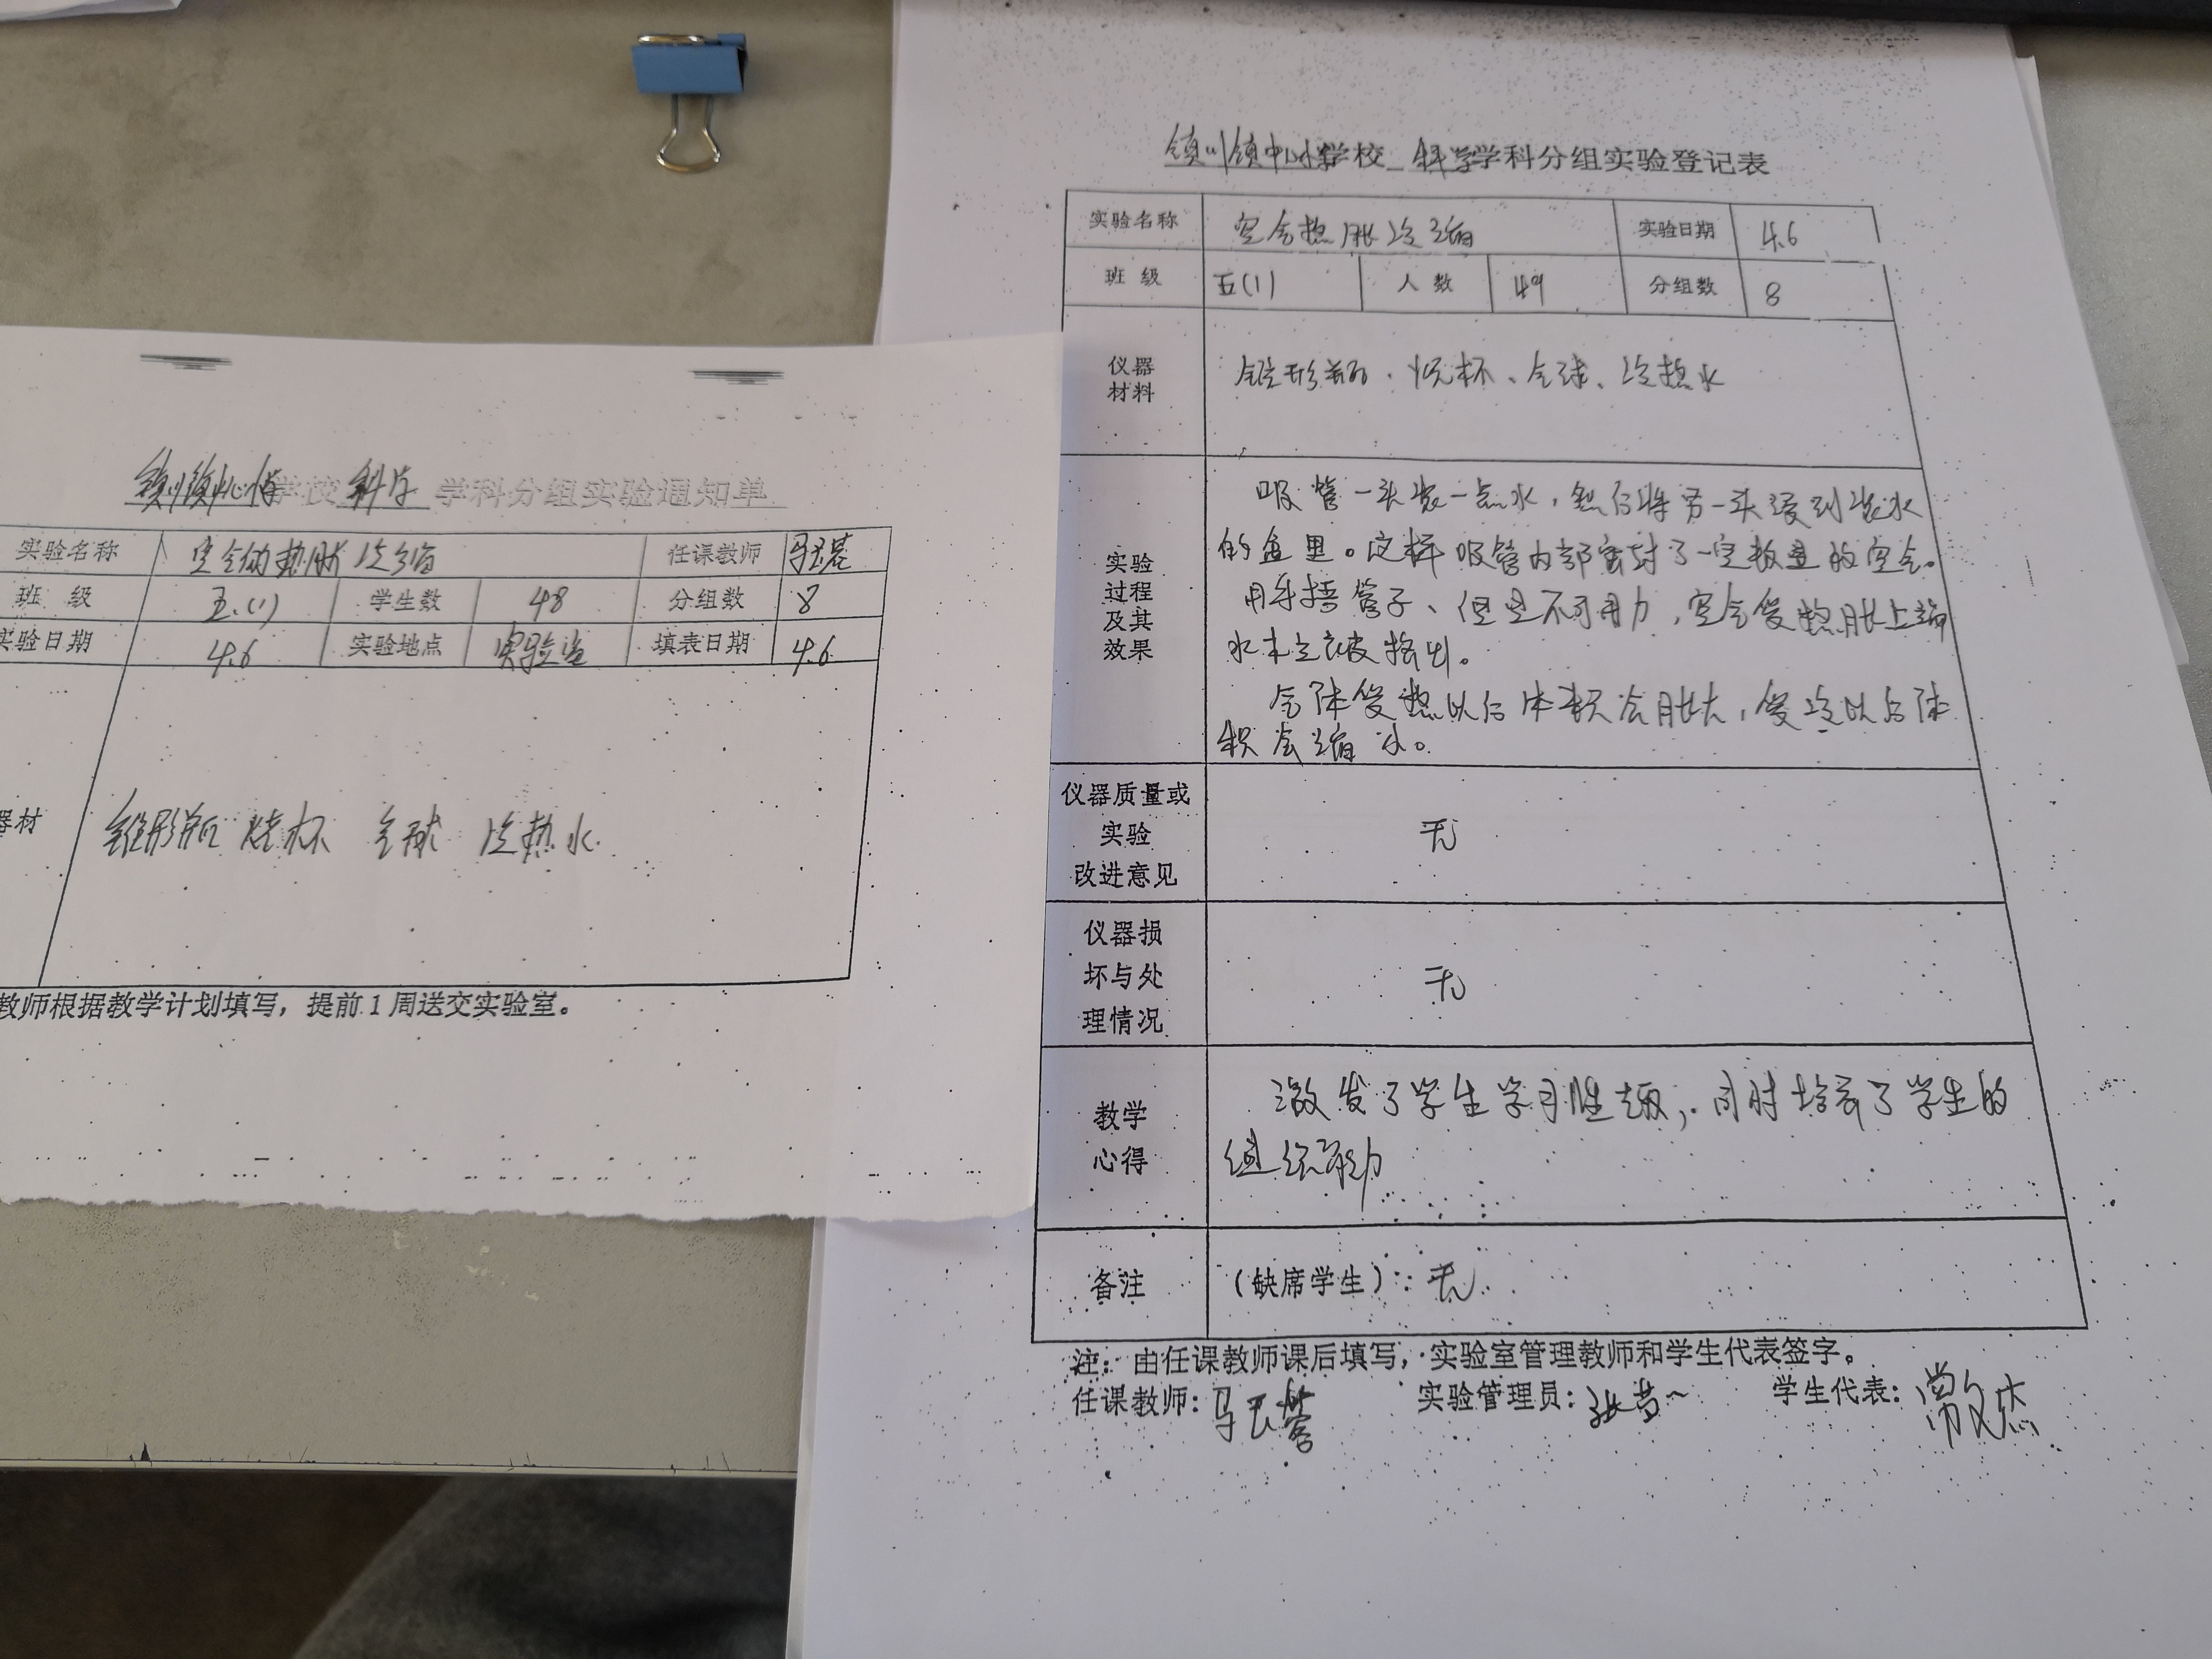 镇川镇中心小学校 科学 学科分组实验通知单
实验名称 空气的热胀冷缩 任课教师
班 级 五.(1) 学生数 48 分组数 8
实验日期 4.6 实验地点 实验室 填表日期 4.6
器材 锥形瓶 烧杯 气球 冷热水
教师根据教学计划填写，提前1周送交实验室。
镇川镇中心小学校 科学学科分组实验登记表
实验名称 空气热胀冷缩 实验日期 4.6
班 级 五(1) 人 数 49 分组数 8
仪器
材料
锥形瓶、烧杯、气球、冷热水
实验
过程
及其
效果
吸管一头装一点水，然后将另一头浸到装水
的盒里。这样吸管内部密封了一定数量的空气。
用手捂管子、但是不可用力，空气受热胀上端
水柱被挤出。
气体受热以后体积会胀大，受冷以后体
积会缩小。
仪器质量或
实验
改进意见
无
仪器损
坏与处
理情况
无
教学
心得
激发了学生学习性趣，同时培养了学生的
组织能力
备注 （缺席学生）：无
注：由任课教师课后填写，实验室管理教师和学生代表签字。
任课教师： 实验管理员： 学生代表：